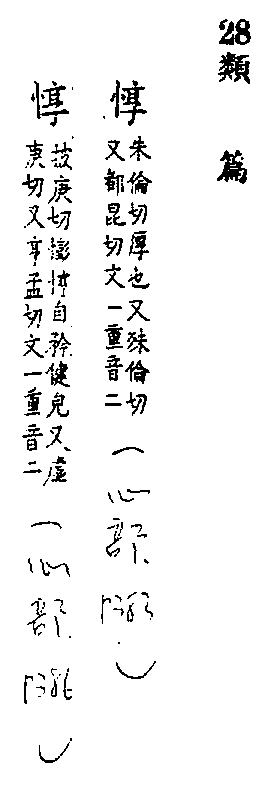 28類篇
惇
朱倫切厚也又殊倫切
又都昆切文一重音二
(心部
)
悙
庚切憉悙自矜健皃又虛
庚切又亨孟切文一重音二
(心部
)